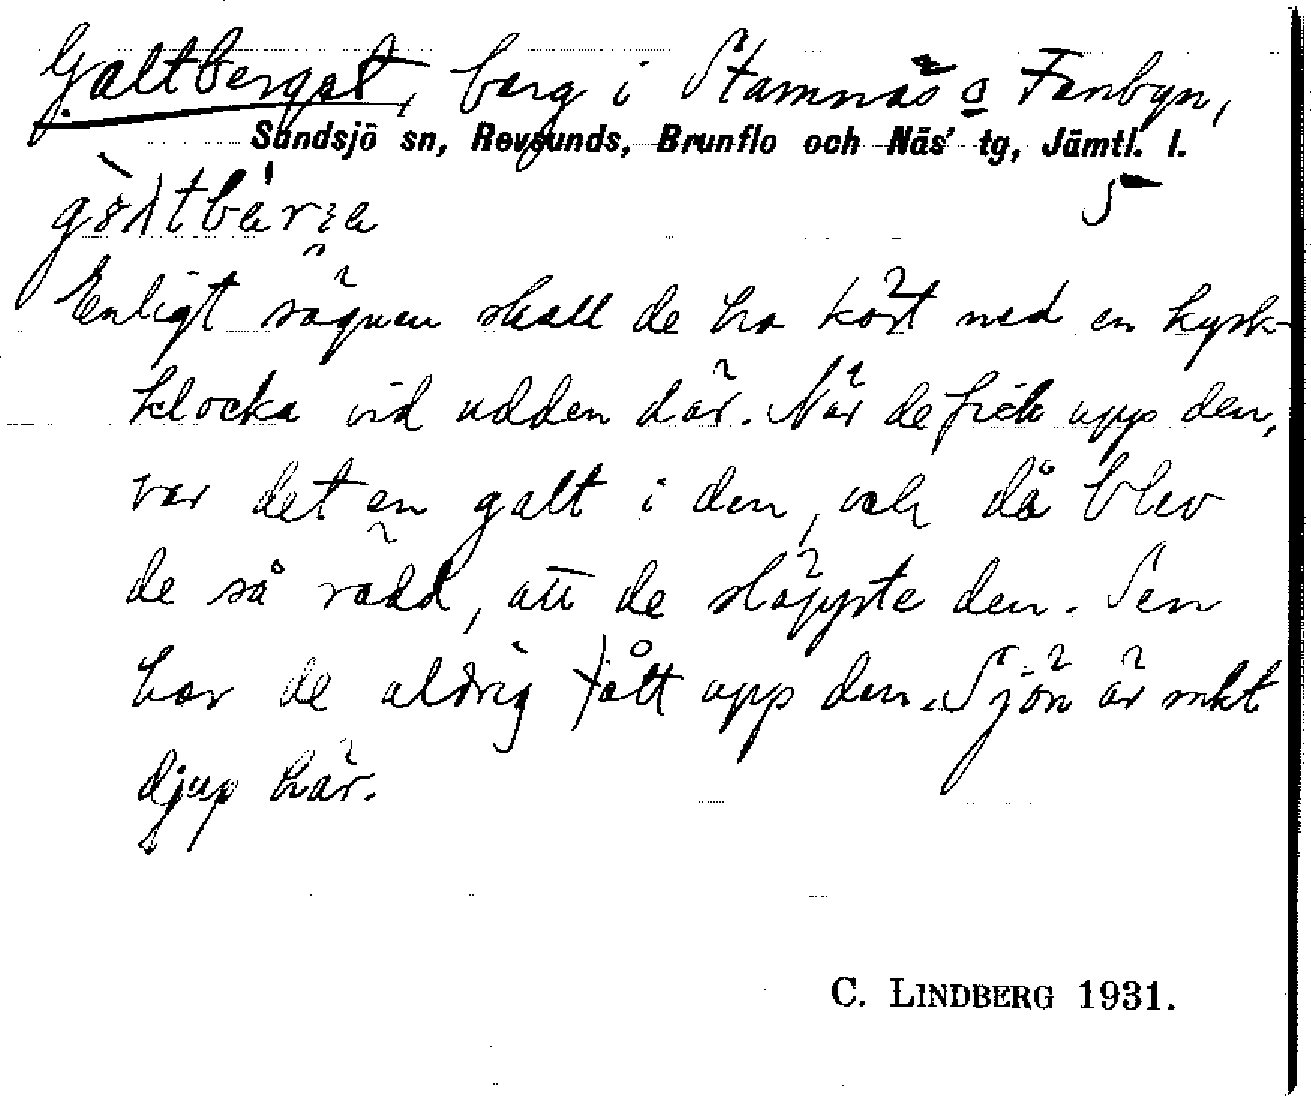 Galtberget, berg i Stamnäs o Fanbyn,
Sundsjö sn, Revsunds, Brunflo och Näs' tg, Jämtl. l.
5
Enligt sägnen skall de ha kört med en kyrk-
klocka vid udden där. När de fick upp den,
var det en galt i den, och då blev
de så rädd, att de släppte den. Sen
har de aldrig fått upp den. Sjön är mkt
djup här.
C. LINDBERG 1931.